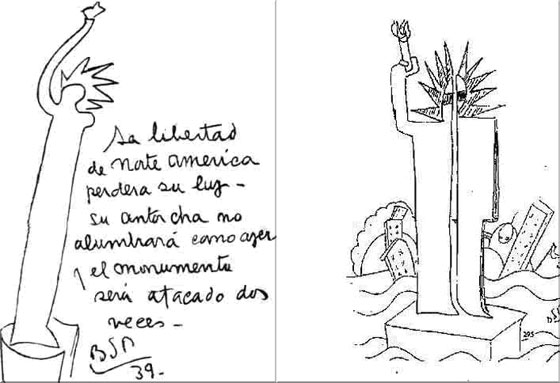 La libertad
de norte america
perdera su luz -
su antorcha no
alumbrará como ayer
y el monumento
será atacado dos
veces -
BSP
39.-